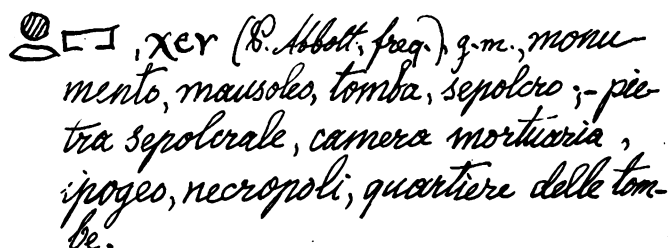 , χer (P. Abbott, freq.), g.m., monu-
mento, mausoleo, tomba, sepolcro ;- pie-
tra sepolcrale, camera mortuaria,
ipogeo, necropoli, quartiere delle tom-
be.